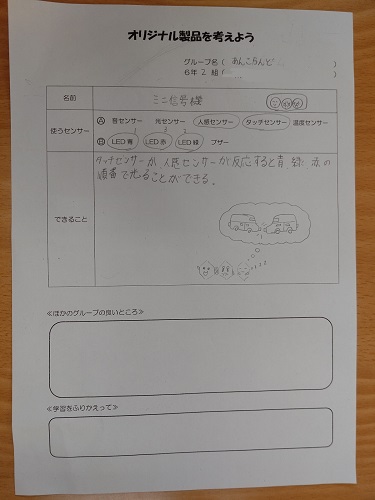 オリジナル製品を考えよう
グループ名（ あんこらんど ）
6年2組（ ）
名前 ミニ信号機
使うセンサー
Ⓐ 音センサー 光センサー 人感センサー タッチセンサー 温度センサー
1 3 2
Ⓑ LED青 LED赤 LED緑 ブザー
できること
タッチセンサーか、人感センサーが反応すると青、緑、赤の
順番で光ることができる。
≪ほかのグループの良いところ≫
≪学習をふりかえって≫